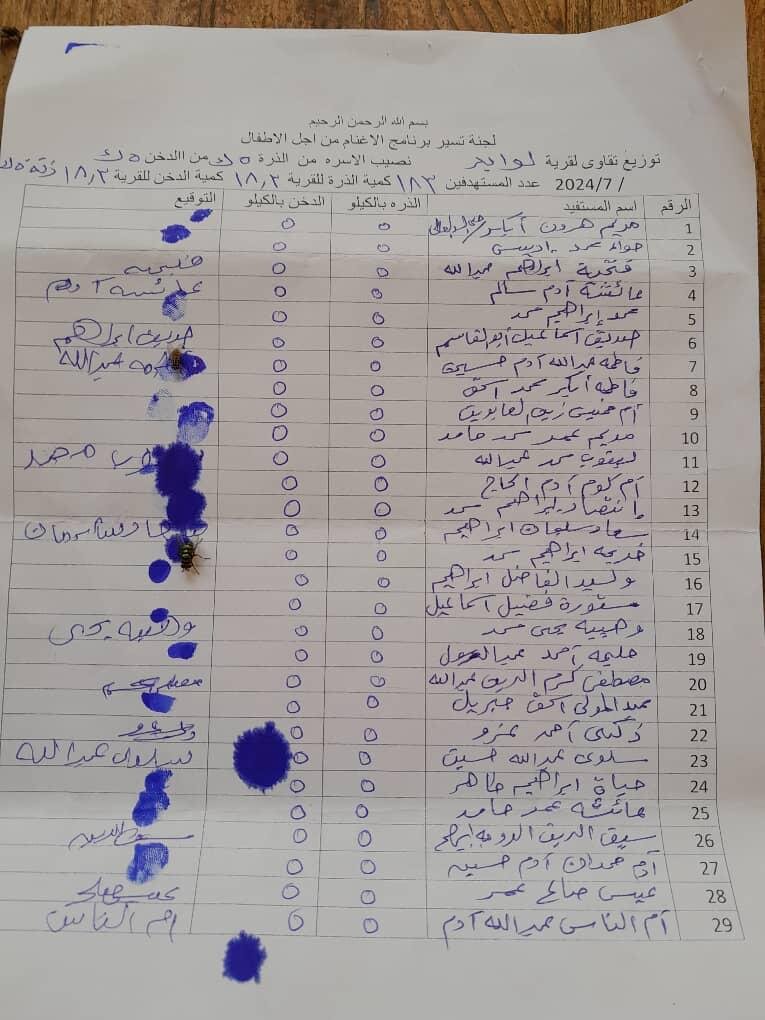 بسم الله الرحمن الرحيم
لجنة تسير برنامج الاغنام من اجل الاطفال
توزيع تقاوى لقرية لوايد نصيب الاسره من الذرة ٥ ك من االدخن ٥ ك
/ 2024/7 عدد المستهدفين ١٨٣ كمية الذرة للقرية ١٨,٣ كمية الدخن للقرية ١٨,٣
الرقم اسم المستفيد الذره بالكيلو الدخن بالكيلو التوقيع
1 مريم هرون أبكر ٥ ٥
2 حواء محمد ٥ ٥
3 فتحية ابراهيم عبدالله ٥ ٥
4 عائشة آدم سالم ٥ ٥ عائشه آدم
5 محمد إبراهيم محمد ٥ ٥
6 صديق اسماعيل أبوالقاسم ٥ ٥ صديق ابراهيم
7 فاطمه عبدالله آدم حسين ٥ ٥ عبدالله
8 فاطمه أبكر محمد اسحق ٥ ٥
9 أم خميس ٥ ٥
10 مريم عمر محمد حامد ٥ ٥
11 يعقوب محمد عبدالله ٥ ٥ محمد
12 أم كلوم آدم الحاج ٥ ٥
13 انتصار إبراهيم محمد ٥ ٥
14 سعاد سليمان ابراهيم ٥ ٥
15 خديجه ابراهيم محمد ٥ ٥
16 وليد الفاضل ابراهيم ٥ ٥
17 مستورة فضيل اسماعيل ٥ ٥
18 وهيبه يحى محمد ٥ ٥ وهيبه يحى
19 حليمه احمد عبدالرسول ٥ ٥
20 مصطفى كرم الدين عبدالله ٥ ٥
21 عبدالمولى اسحق جبريل ٥ ٥
22 أحمد ٥ ٥
23 سلوى عبدالله حسين ٥ ٥ سلوى عبدالله
24 حياة ابراهيم طاهر ٥ ٥
25 عائشه محمد حامد ٥ ٥
26 سيف الدين ٥ ٥
27 آدم حمدان آدم حسين ٥ ٥
28 عيسى صالح عمر ٥ ٥
29 أم الناس عبدالله آدم ٥ ٥ ام الناس